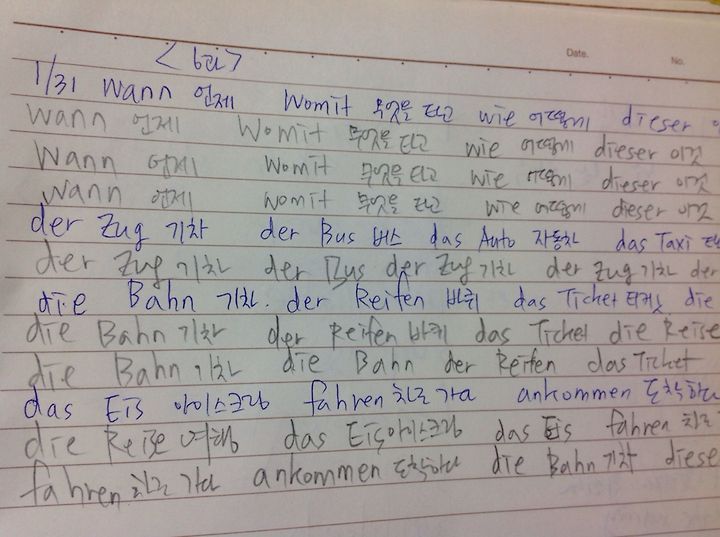 < 6a >
Date. No.
1/31 Wann 언제 Womit 무엇을 타고 wie 어떻게 dieser
Wann 언제 Womit 무엇을 타고 wie 어떻게 dieser 이것
Wann 언제 Womit 무엇을 타고 wie 어떻게 dieser 이것
Wann 언제 Womit 무엇을 타고 wie 어떻게 dieser 이것
der Zug 기차 der Bus 버스 das Auto 자동차 das Taxi
der Zug 기차 der Bus der Zug 기차 der Zug 기차 der
die Bahn 기차. der Reifen 바퀴 das Ticket 티켓 die
die Bahn 기차 der Reifen 바퀴 das Ticket die Reise
die Bahn 기차 die Bahn der Reifen das Ticket
das Eis 아이스크림 fahren 차로 가다 ankommen 도착하다
die Reise 여행 das Eis 아이스크림 das Eis fahren 차로
fahren 차로 가다 ankommen 도착하다 die Bahn 기차 diese